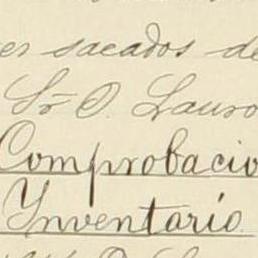 es sacados de
Sr O. Lauro
Comprobacio
Inventario